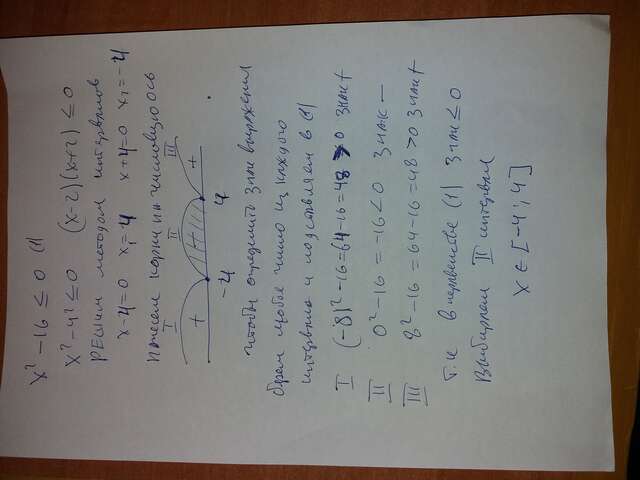 x² - 16 ≤ 0 (1)
x² - 4² ≤ 0 (x-2)(x+2) ≤ 0
Решим методом интервалов
x-4=0 x₁=4 x+4=0 x₂=-4
Нанесем корни на числовую ось
I II III
+ +
-4 4
Чтобы определить знак выражения
берем любое число из каждого
интервала и подставляем в (1)
I (-8)² - 16 = 64 - 16 = 48 > 0 знак +
II 0² - 16 = -16 < 0 знак -
III 8² - 16 = 64 - 16 = 48 > 0 знак +
Т.к в неравенстве (1) знак ≤ 0
Выбираем II интервал
x ∈ [-4; 4]